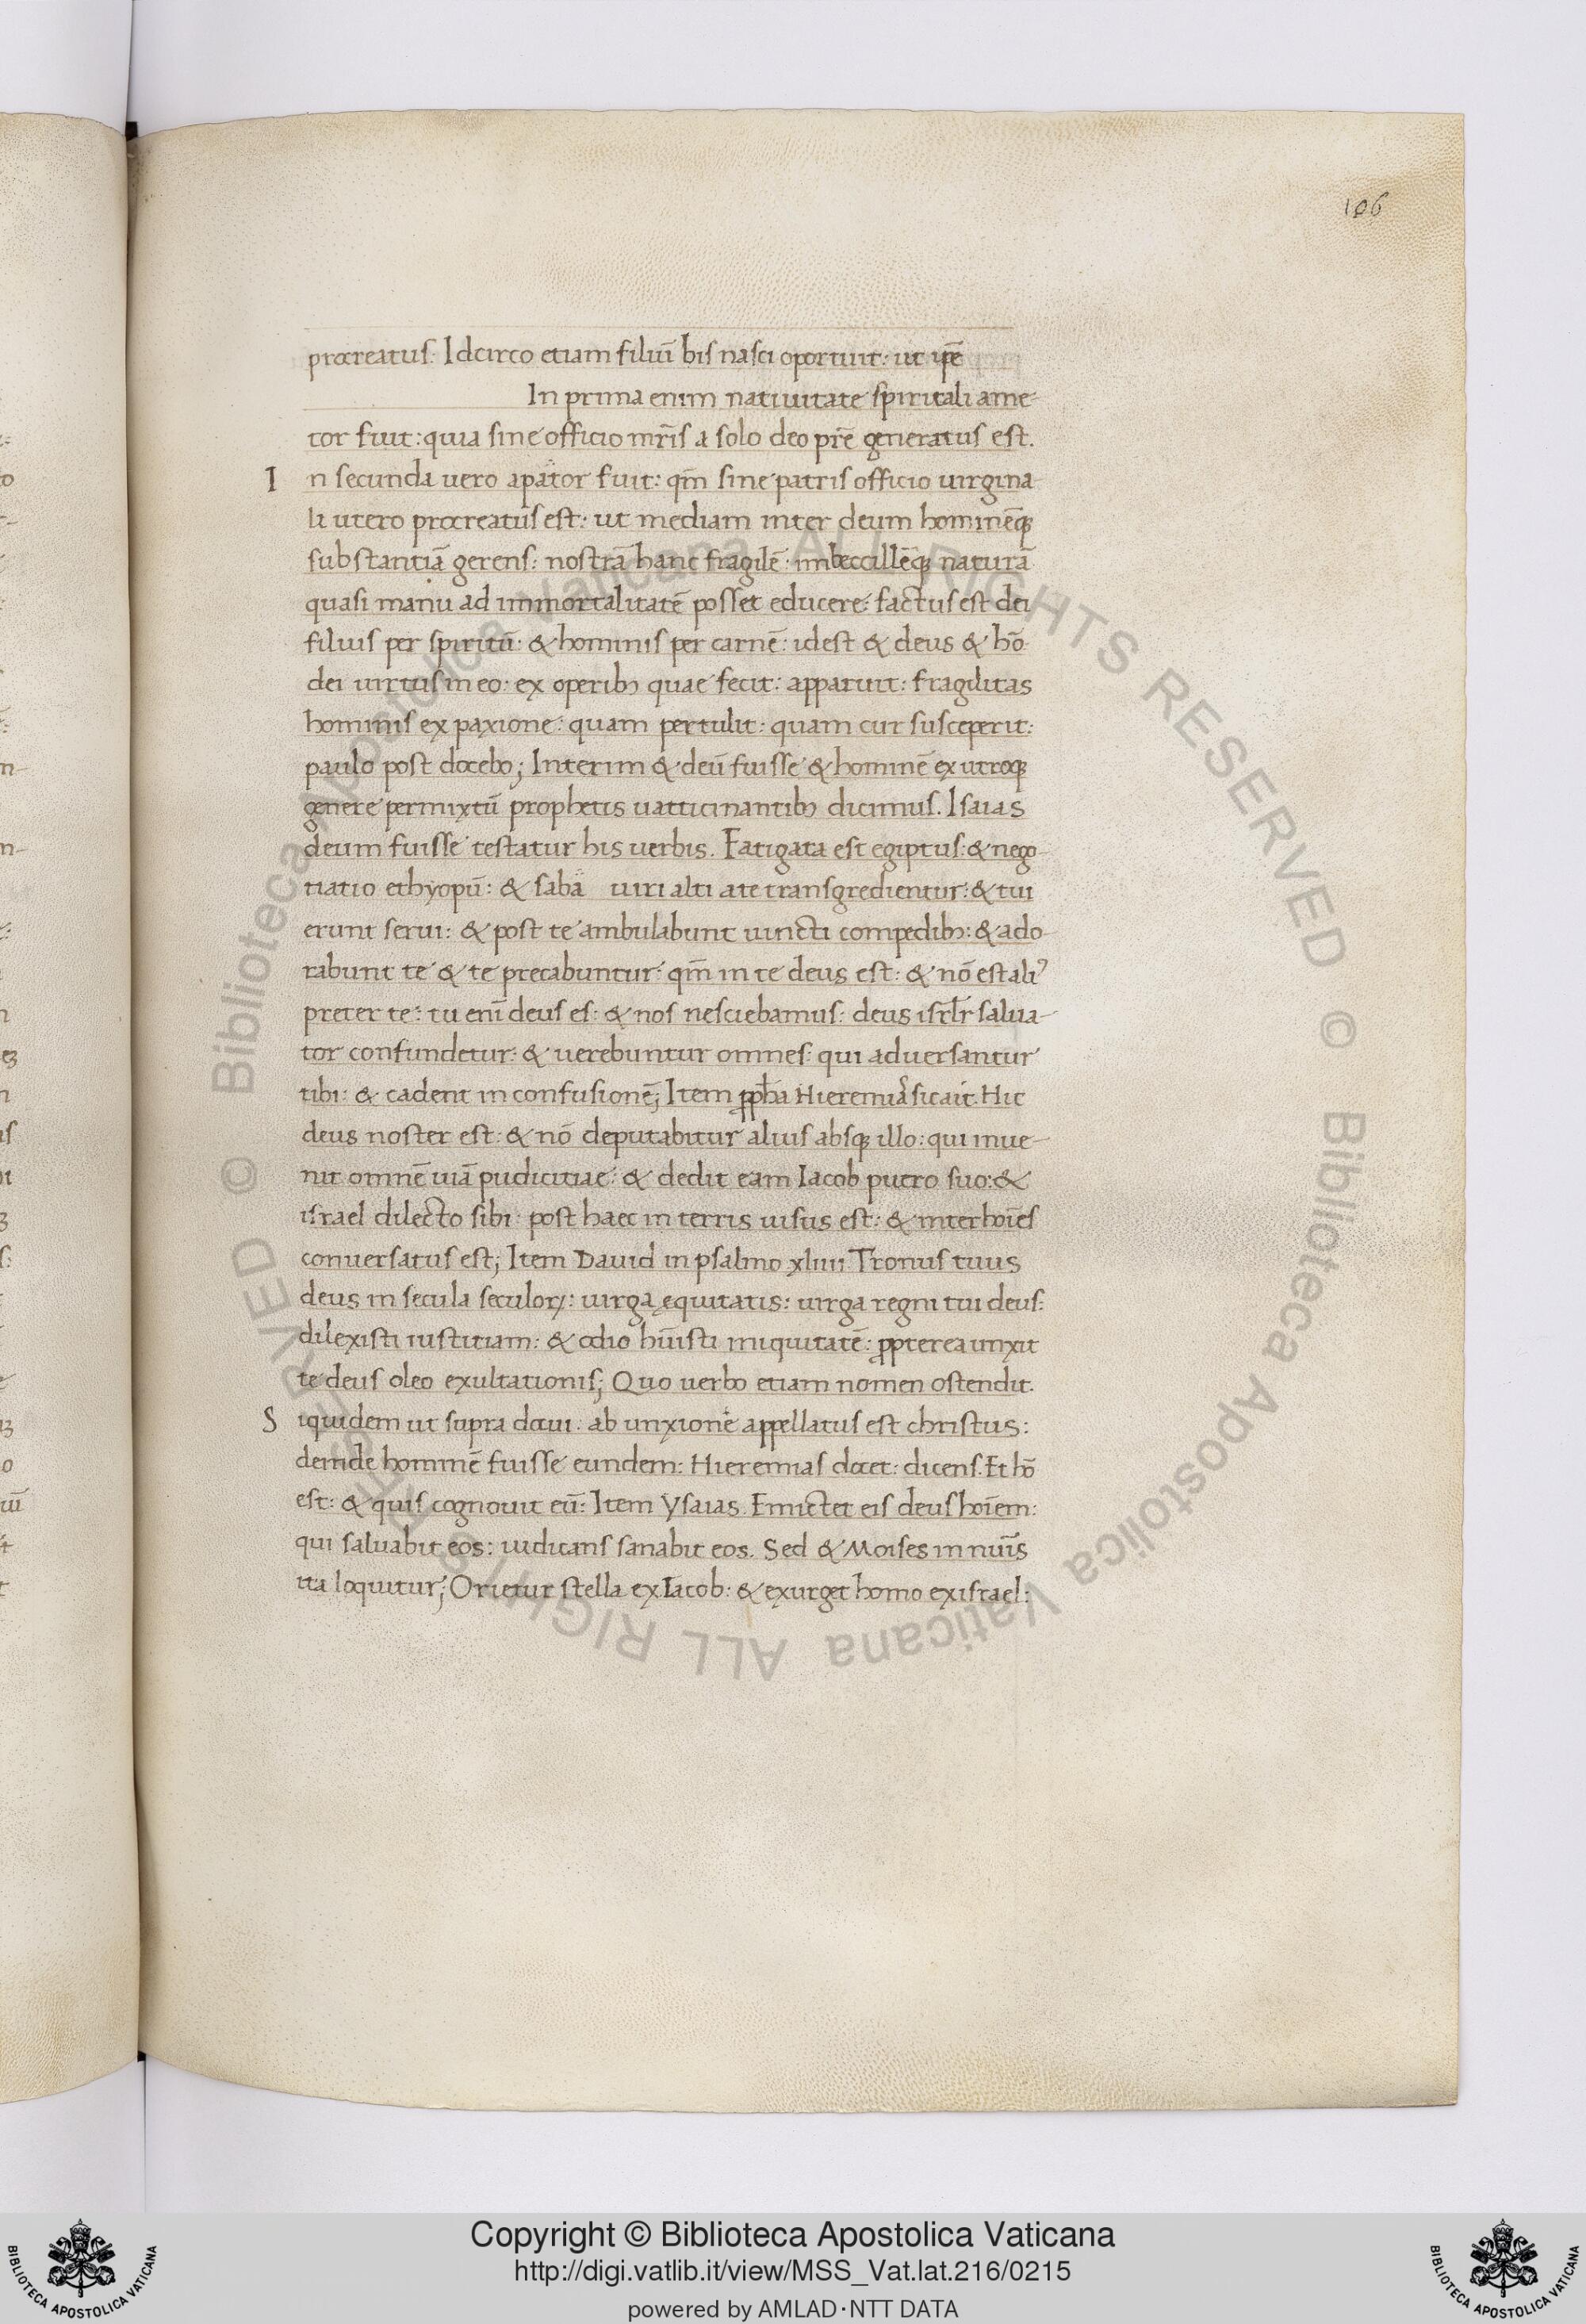 106
procreatus: Idcirco etiam filiū bis nasci oportuit: ut ip̄e
In prima enim natiuitate spiritali ame-
tor fuit: quia sine officio mr̄is a solo deo pr̄e generatus est.
In secunda uero apator fuit: qm̄ sine patris officio uirgina-
li utero procreatus est: ut mediam inter deum hominēq;
substantiā gerens: nostrā hanc fragilē imbeccillēq; naturā
quasi manu ad immortalitatē posset educere: factus est dei
filius per spiritū: & hominis per carnē: idest & deus & hō
dei uirtus in eo: ex operib; quae fecit: apparuit: fragilitas
hominis ex paxione: quam pertulit: quam cur susceperit:
paulo post docebo; Interim & deū fuisse & hominē ex utroq;
genere permixtū prophetis uatticinantib; dicimus. Isaias
deum fuisse testatur his uerbis. Fatigata est egiptus: & nego-
tiatio ethyopū: & saba uiri alti ate transgredientur: & tui
erunt serui: & post te ambulabunt uincti compedib;: & ado-
rabunt te & te precabuntur: qm̄ in te deus est: & nō est aliꝰ
preter te: tu eni̅ deus es: & nos nesciebamus: deus isrl̄r salua-
tor confundetur: & uerebuntur omnes: qui aduersantur
tibi: & cadent in confusionē; Item ꝓpħa Hieremias sic ait. Hic
deus noster est: & nō deputabitur alius absq; illo: qui inue-
nit omnē uiā pudicitiae: & dedit eam Iacob puero suo: &
israel dilecto sibi: post haec in terris uisus est: & inter hoīes
conuersatus est; Item Dauid in psalmo xliiii Tronus tuus
deus in secula seculoꝝ: uirga ęquitatis: uirga regni tui deus:
dilexisti iustitiam: & odio hūisti iniquitatē: ꝓpterea unxit
te deus oleo exultationis; Quo uerbo etiam nomen ostendit.
Siquidem ut supra docui: ab unxione appellatus est christus:
deinde hominē fuisse eundem: Hieremias docet: dicens. Et hō
est: & quis cognouit eū: Item Ysaias. Emictet eis deus hoīem:
qui saluabit eos: iudicans sanabit eos. Sed & Moises in nuīs
ita loquitur; Orietur stella ex Iacob: & exurget homo ex israel:
© Biblioteca Apostolica Vaticana ALL RIGHTS RESERVED
© Biblioteca Apostolica Vaticana ALL RIGHTS RESERVED
Copyright © Biblioteca Apostolica Vaticana
http://digi.vatlib.it/view/MSS_Vat.lat.216/0215
powered by AMLAD·NTT DATA
BIBLIOTECA APOSTOLICA VATICANA
BIBLIOTECA APOSTOLICA VATICANA